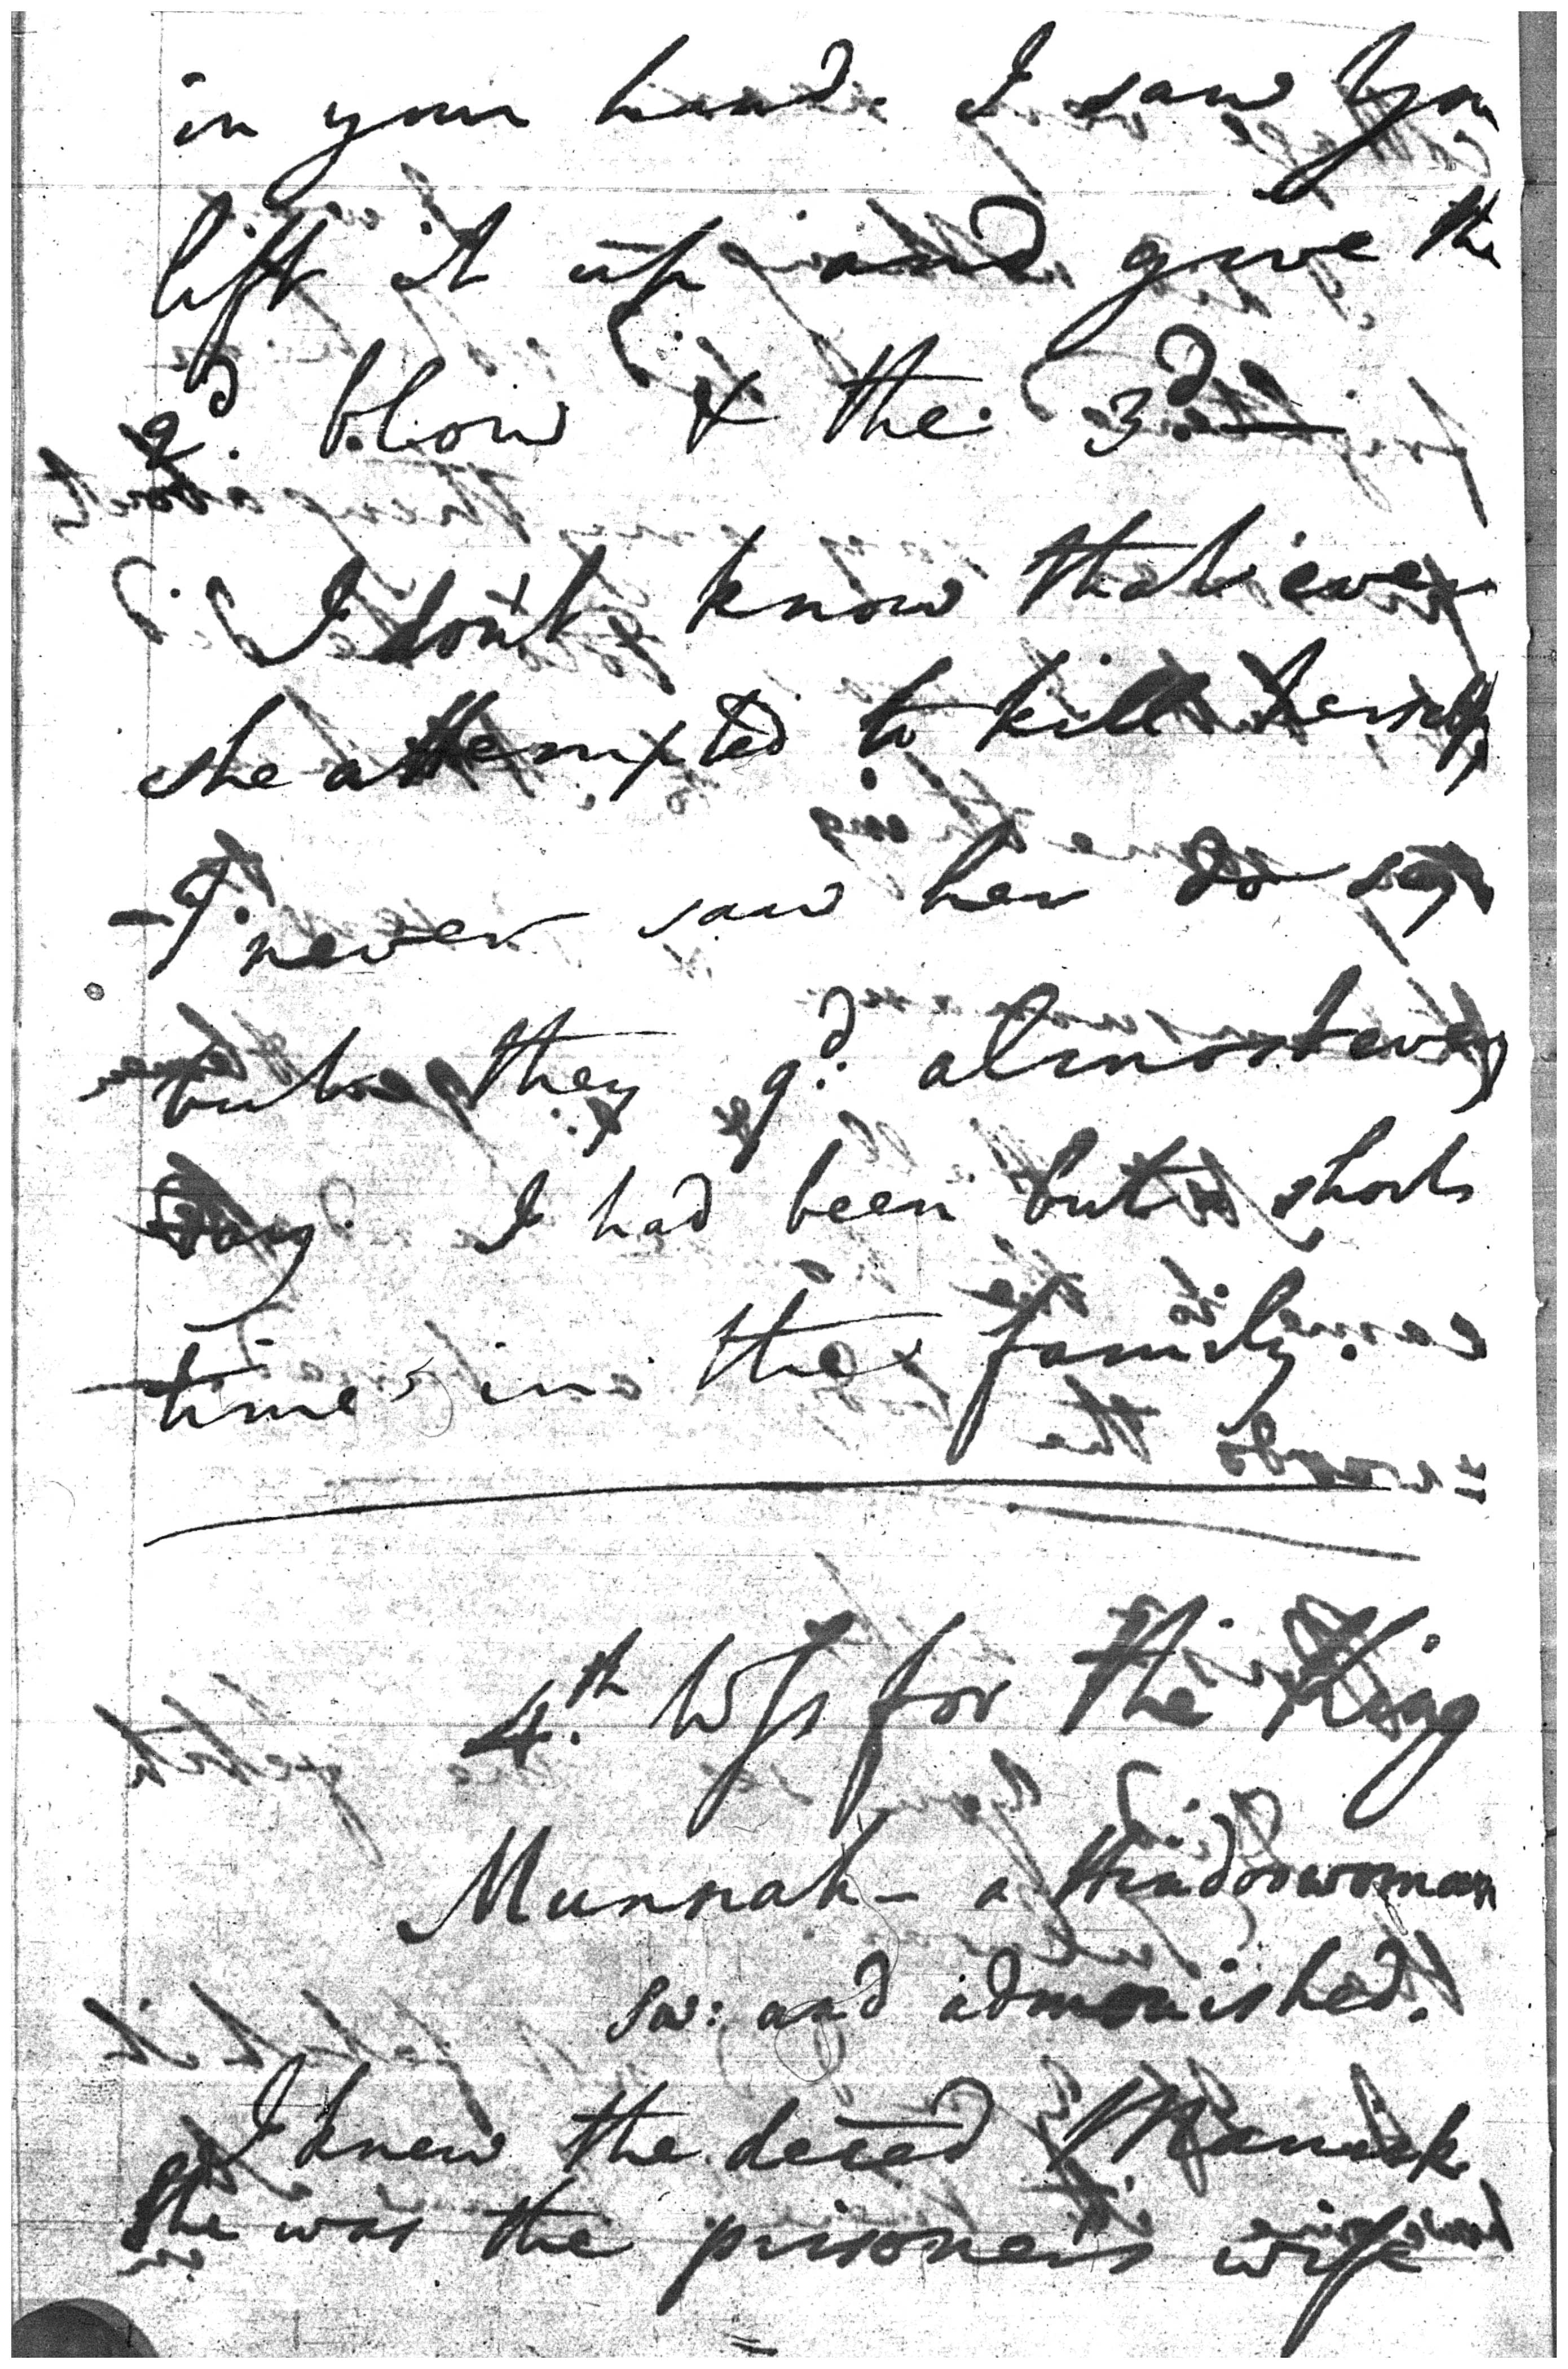 in your hand. I saw you
lift it up and give the
2d. blow & the 3d.
I don't know that ever
she attempted to kill herself
– I never saw her do so,
but they q.d almost every
day. I had been but a short
time in the family.
4.th Wss for the King
Munnah – a Hindoo woman
sw: and admonished.
I knew the deced Manick
She was the prisoner's wife